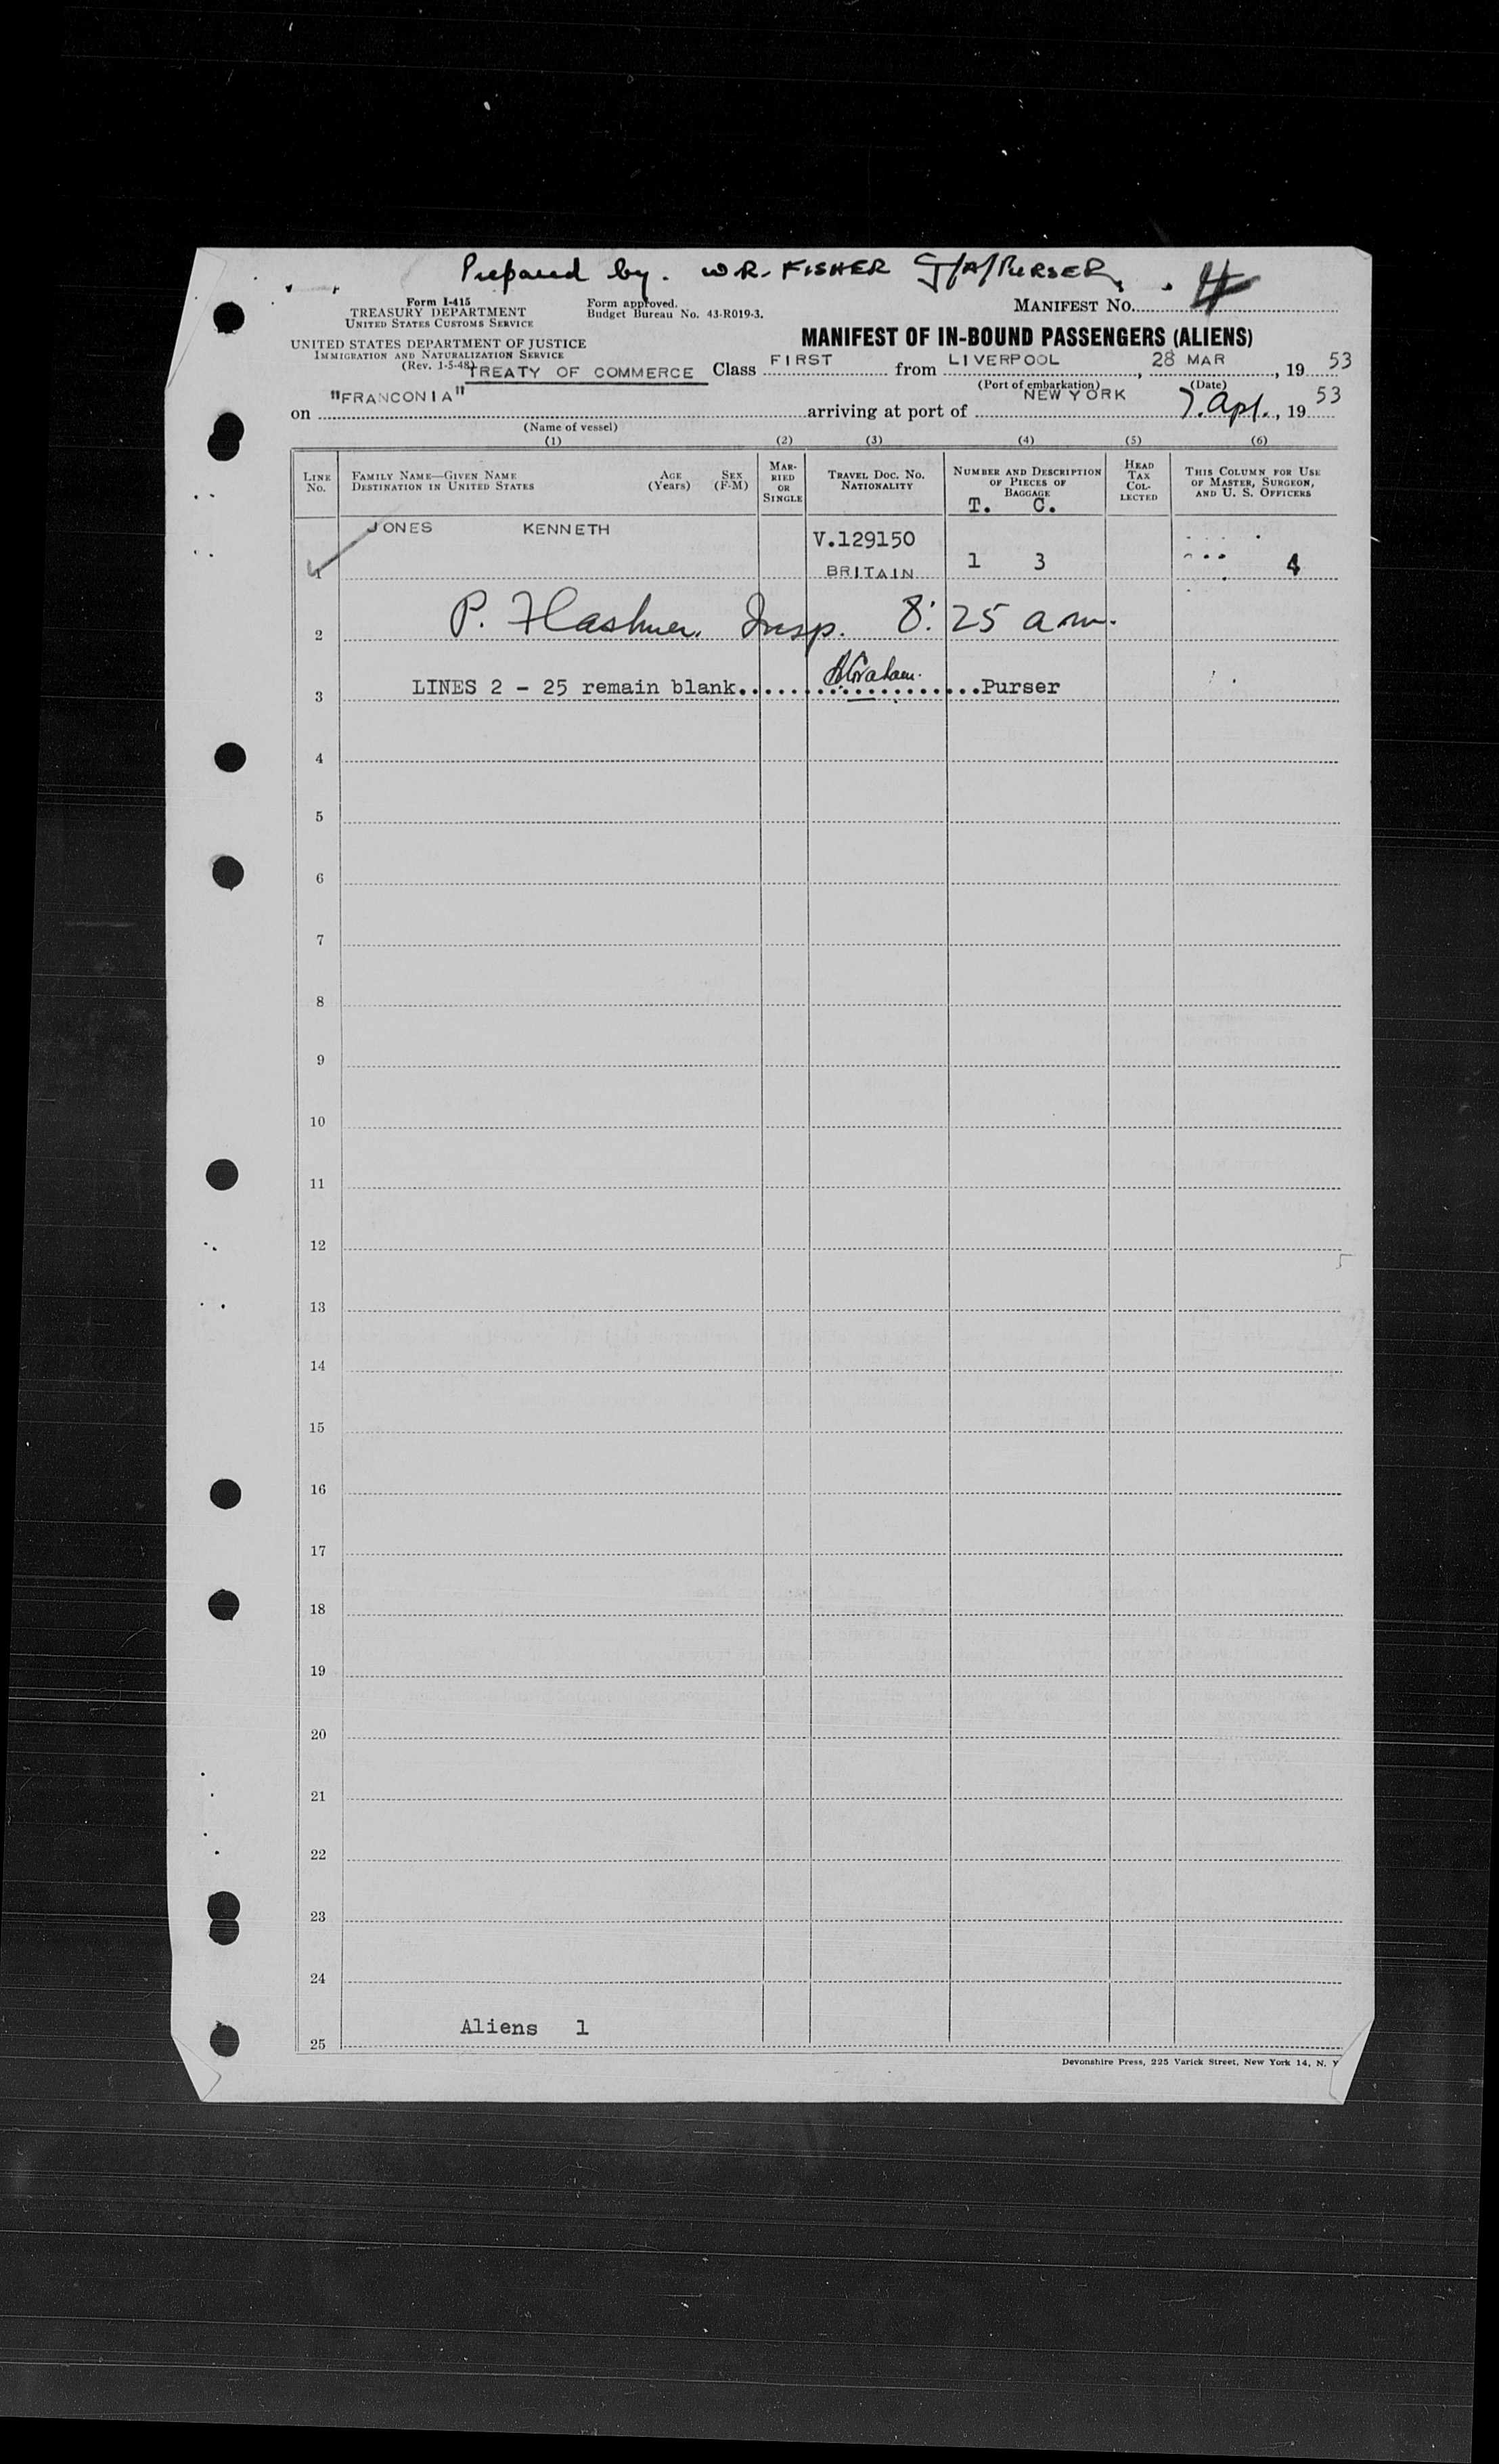 Prepared by. W.R. FISHER PURSER
Form I-415
TREASURY DEPARTMENT
UNITED STATES CUSTOMS SERVICE
Form approved.
Budget Bureau No. 43-R019-3.
MANIFEST NO.
UNITED STATES DEPARTMENT OF JUSTICE
IMMIGRATION AND NATURALIZATION SERVICE
(Rev. 1-5-48)
MANIFEST OF IN-BOUND PASSENGERS (ALIENS)
TREATY OF COMMERCE Class FIRST from LIVERPOOL, 28 MAR, 1953
(Port of embarkation) (Date)
on "FRANCONIA" arriving at port of NEW YORK 7. Apl., 1953
(Name of vessel)
(1) (2) (3) (4) (5) (6)
LINE No.
FAMILY NAME—GIVEN NAME
DESTINATION IN UNITED STATES
AGE (Years)
SEX (F-M)
MARRIED OR SINGLE
TRAVEL DOC. NO.
NATIONALITY
NUMBER AND DESCRIPTION OF PIECES OF BAGGAGE
T. C.
HEAD TAX COLLECTED
THIS COLUMN FOR USE OF MASTER, SURGEON, AND U. S. OFFICERS
1 JONES KENNETH V.129150
BRITAIN 1 3 4
2 P. Insp. 8:25 am.
3 LINES 2 - 25 remain blank Graham. Purser
4
5
6
7
8
9
10
11
12
13
14
15
16
17
18
19
20
21
22
23
24
25 Aliens 1
Devonshire Press, 225 Varick Street, New York 14, N. Y